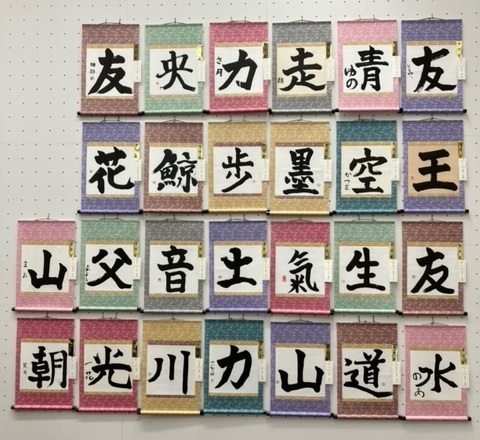 友 央 力 走 青 友
花 鯨 歩 墨 空 王
山 父 音 土 氣 生 友
朝 光 川 力 山 道 水